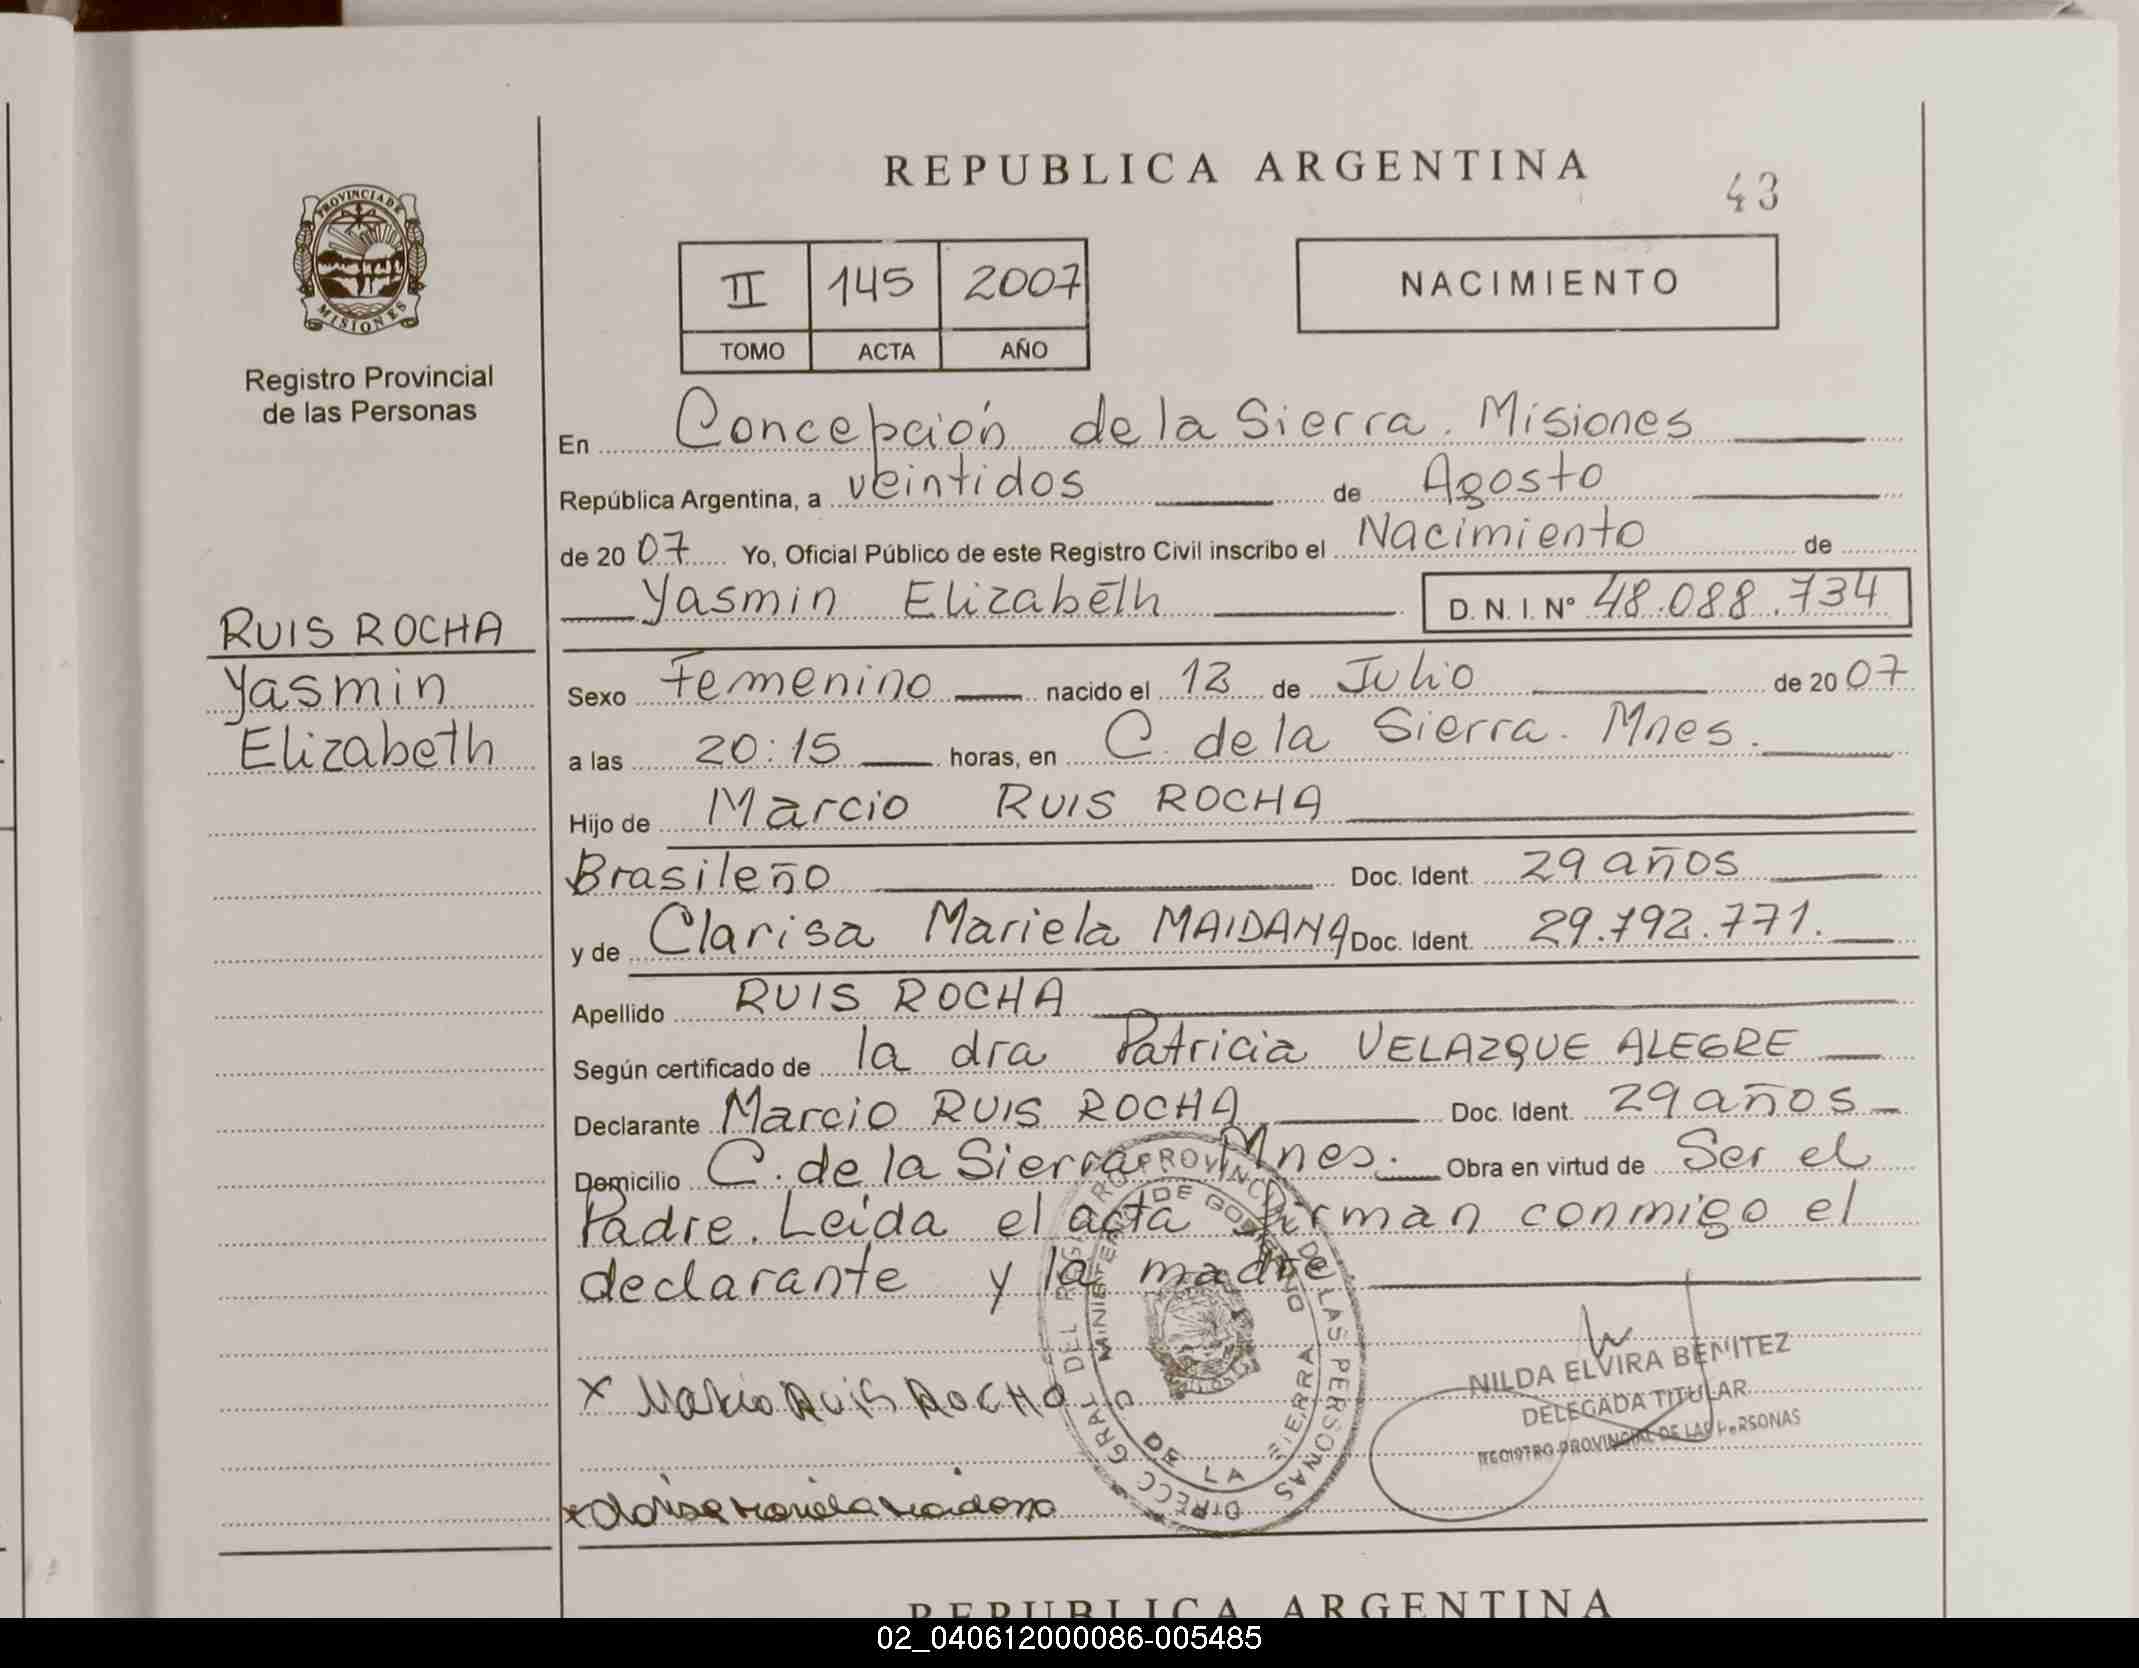 REPUBLICA ARGENTINA
43
PROVINCIA DE
MISIONES
Registro Provincial
de las Personas
II 145 2007
TOMO ACTA AÑO
NACIMIENTO
En Concepción de la Sierra. Misiones
República Argentina, a veintidos de Agosto
de 2007 Yo, Oficial Público de este Registro Civil inscribo el Nacimiento de
Yasmin Elizabeth D. N. I. N° 48.088.734
RUIS ROCHA
Yasmin
Elizabeth
Sexo Femenino nacido el 12 de Julio de 2007
a las 20:15 horas, en C. de la Sierra. Mnes.
Hijo de Marcio RUIS ROCHA
Brasileño Doc. Ident. 29 años
y de Clarisa Mariela MAIDANA Doc. Ident. 29.792.771.
Apellido RUIS ROCHA
Según certificado de la dra Patricia VELAZQUE ALEGRE
Declarante Marcio RUIS ROCHA Doc. Ident. 29 años
Domicilio C. de la Sierra Mnes. Obra en virtud de Ser el
Padre. Leída el acta firman conmigo el
declarante y la madre
DIRECC GRAL DEL REGISTRO PROVINCIAL DE LAS PERSONAS
MINISTERIO DE GOBIERNO
C DE LA SIERRA
x Marcio RUIS ROCHA
NILDA ELVIRA BENITEZ
DELEGADA TITULAR
REGISTRO PROVINCIAL DE LAS PERSONAS
x Clarisa mariela maidana
REPUBLICA ARGENTINA
02_040612000086-005485